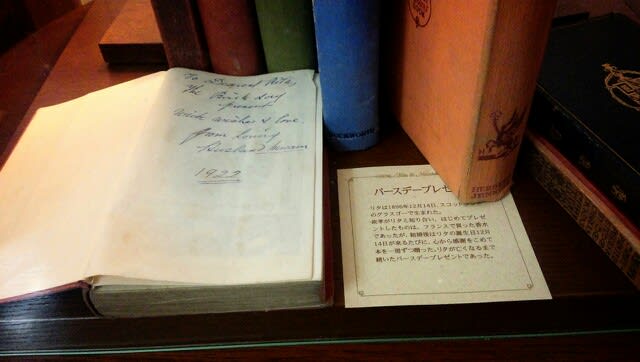 To Dearest Rita,
The Birth day
present
With wishes & love.
from loving
Husband
1923
DUCKWORTH
バースデープレゼ
リタは1896年12月14日、スコット
のグラスゴーで生まれた。
政孝がリタと知り合い、はじめてプレゼ
ントしたものは、フランスで買った香水
であったが、結婚後はリタの誕生日12月
14日が来るたびに、心から感謝をこめて
本を一冊ずつ贈った。リタが亡くなるまで
続いたバースデープレゼントであった。
HERBERT
JENKINS